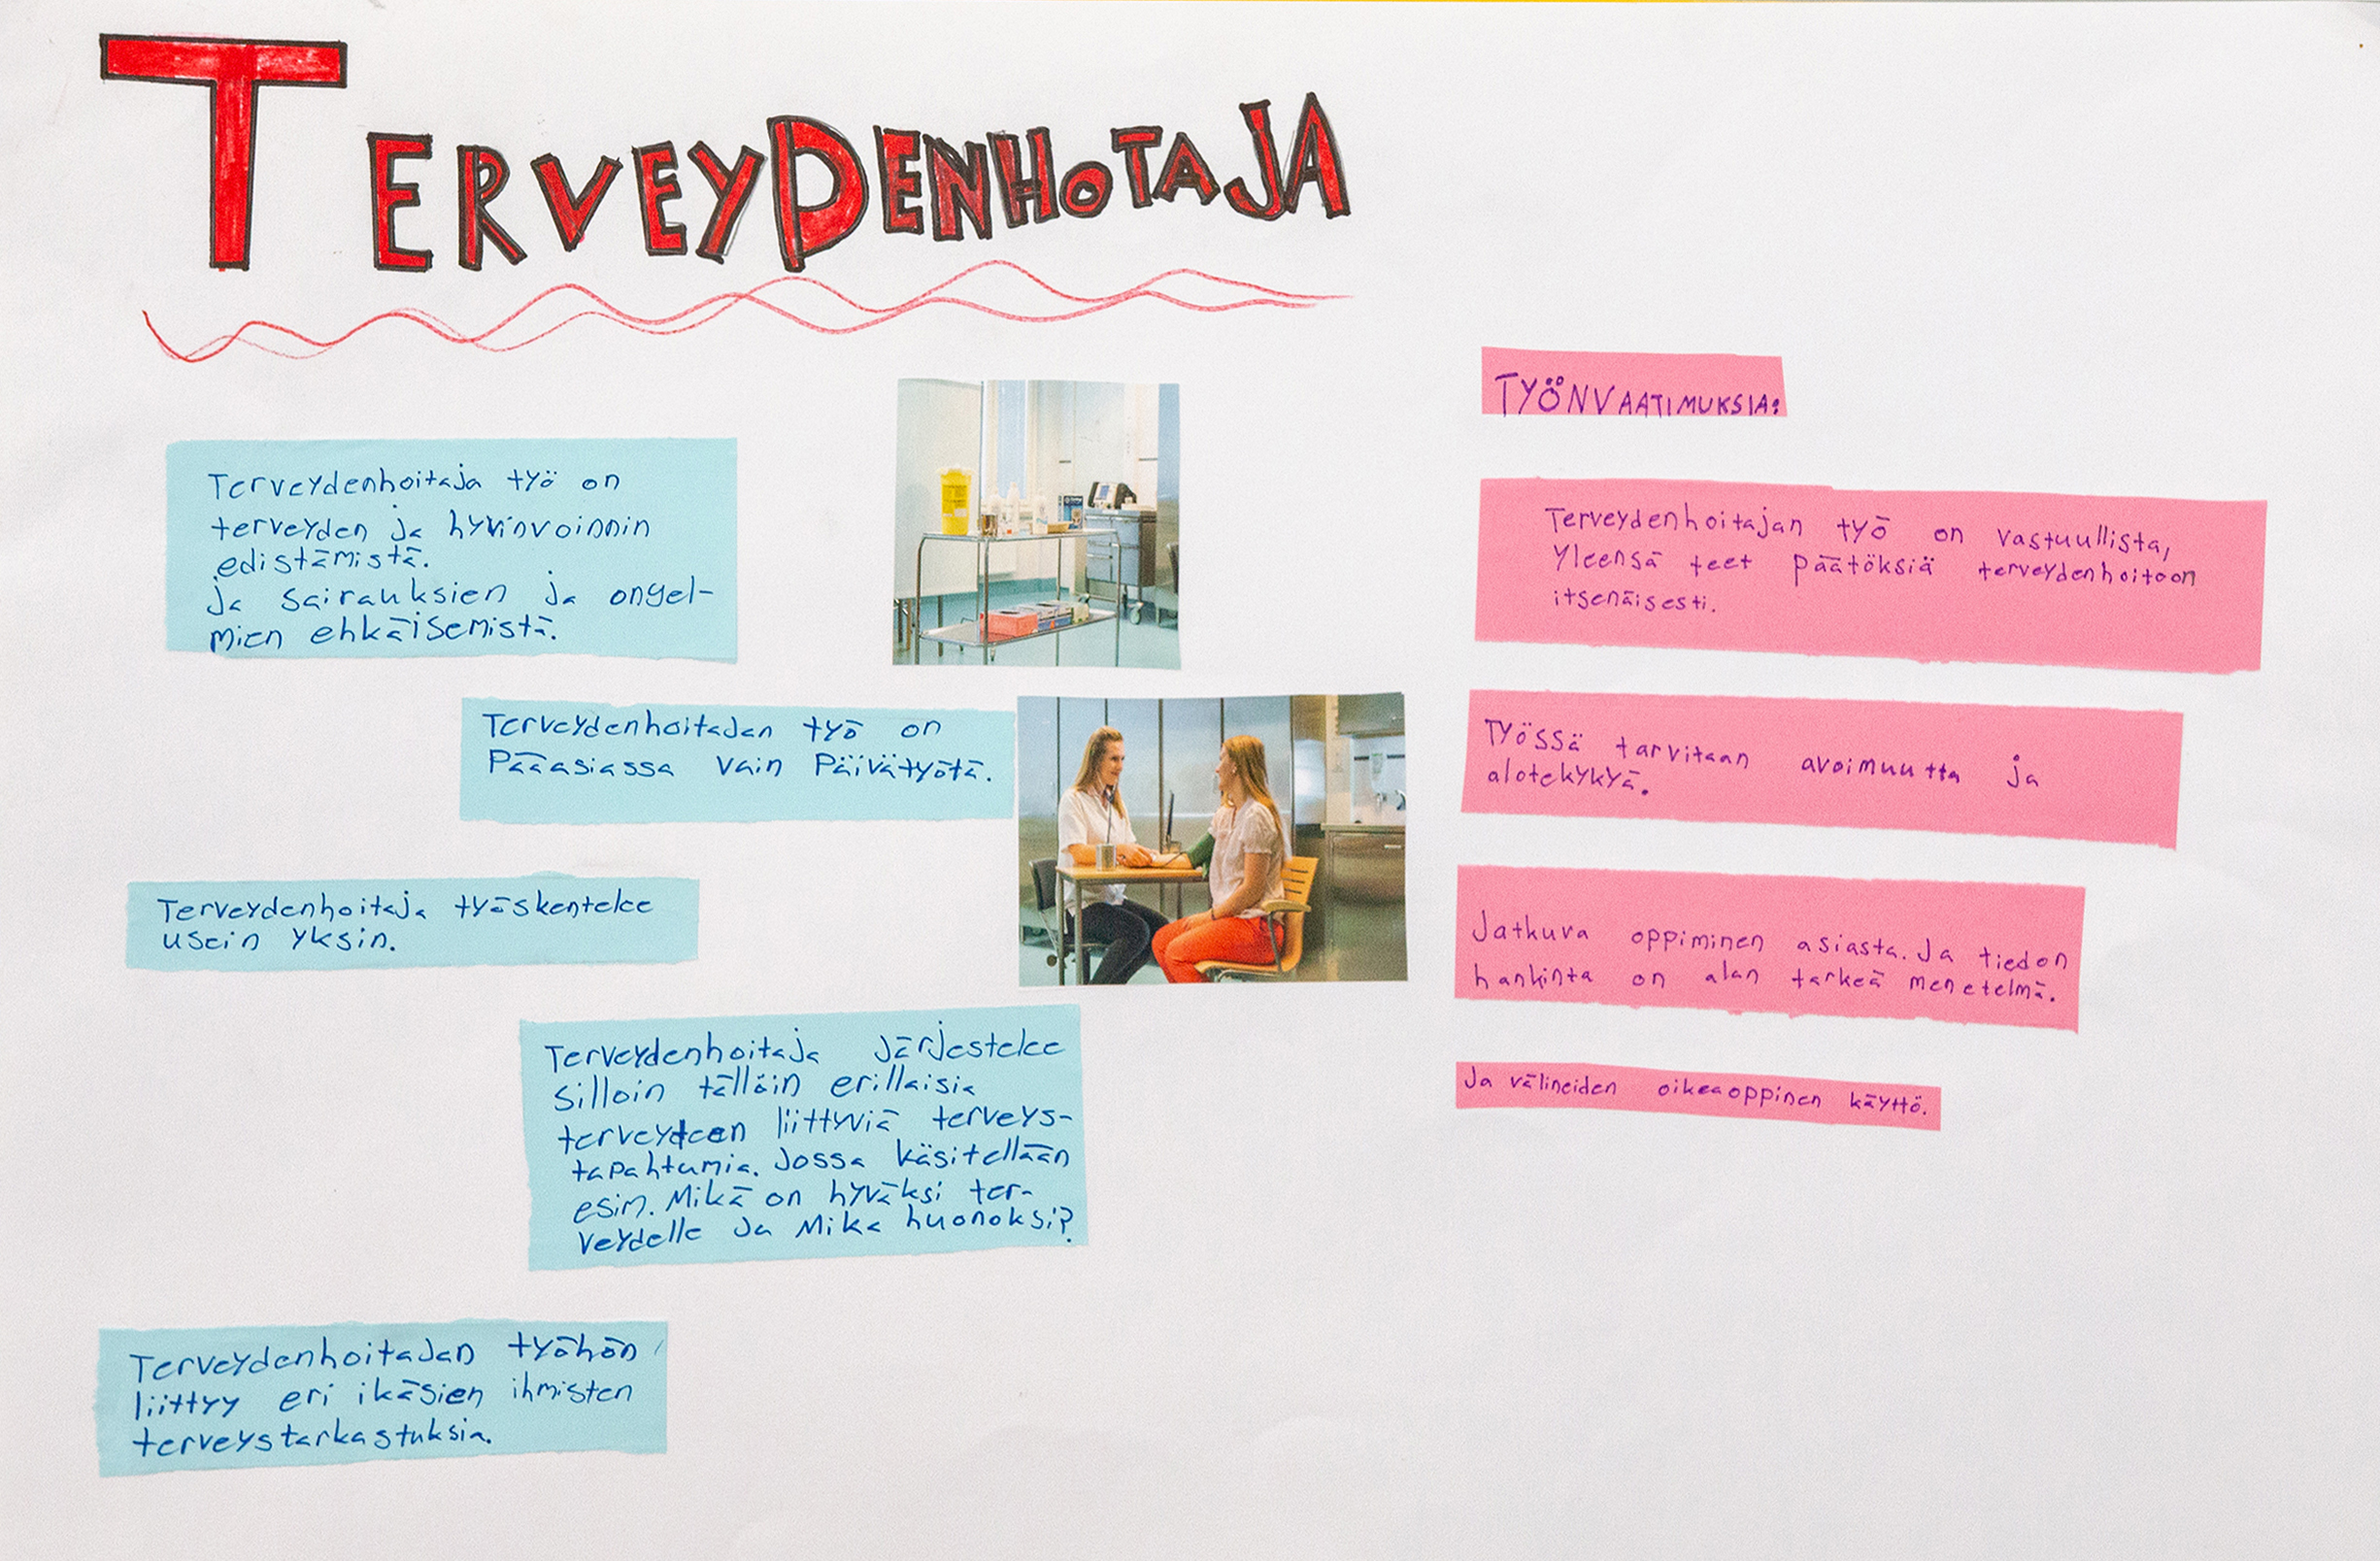 TERVEYDENHOTAJA
Terveydenhoitaja työ on
terveyden ja hyvinvoinnin
edistämistä.
ja sairauksien ja ongel-
mien ehkäisemistä.
Terveydenhoitajan työ on
Pääasiassa vain Päivätyötä.
Terveydenhoitaja työskentelee
usein yksin.
Terveydenhoitaja Järjestelee
silloin tällöin erillaisia
terveyteen liittyviä terveys-
tapahtumia. Jossa käsitellään
esim. Mikä on hyväksi ter-
veydelle Ja Mikä huonoksi?
Terveydenhoitajan työhön
liittyy eri ikäsien ihmisten
terveystarkastuksia.
TYÖNVAATIMUKSIA:
Terveydenhoitajan työ on vastuullista,
Yleensä teet päätöksiä terveydenhoitoon
itsenäisesti.
Työssä tarvitaan avoimuutta ja
alotekykyä.
Jatkuva oppiminen asiasta. Ja tiedon
hankinta on alan tarkeä menetelmä.
Ja välineiden oikeaoppinen käyttö.